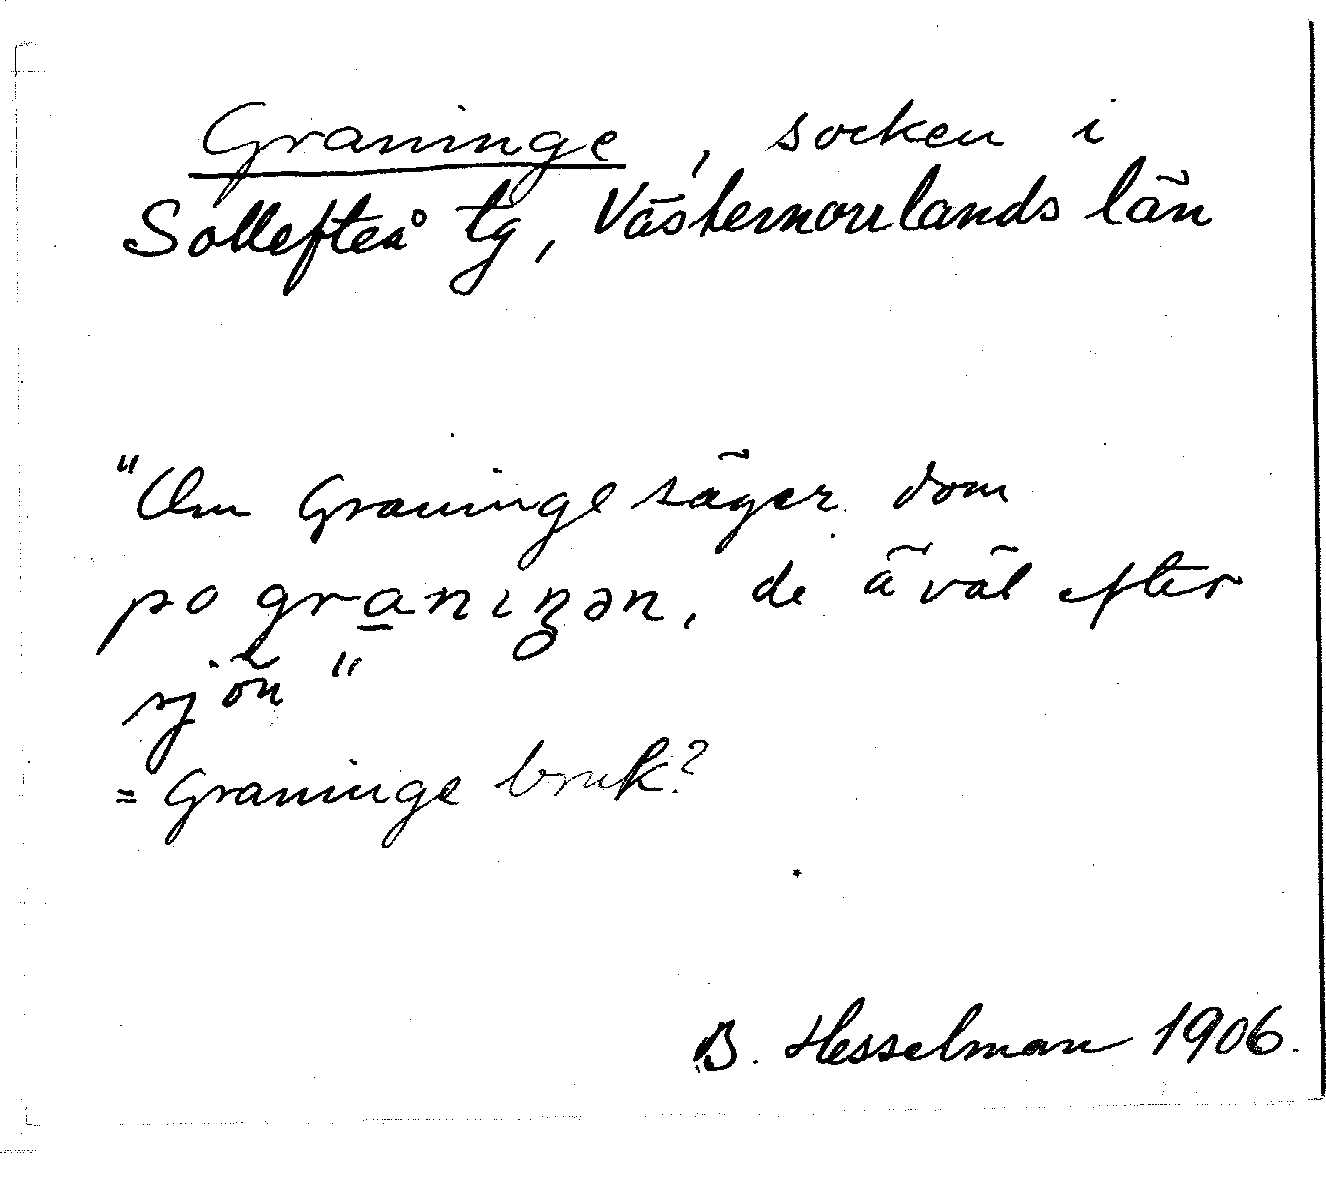 Graninge, socken i
Sollefteå tg, Västernorrlands län
"Om Graninge säger dom
po gra̲niŋən, de ä väl efter
sjön"
= Graninge bruk?
B. Hesselman 1906.